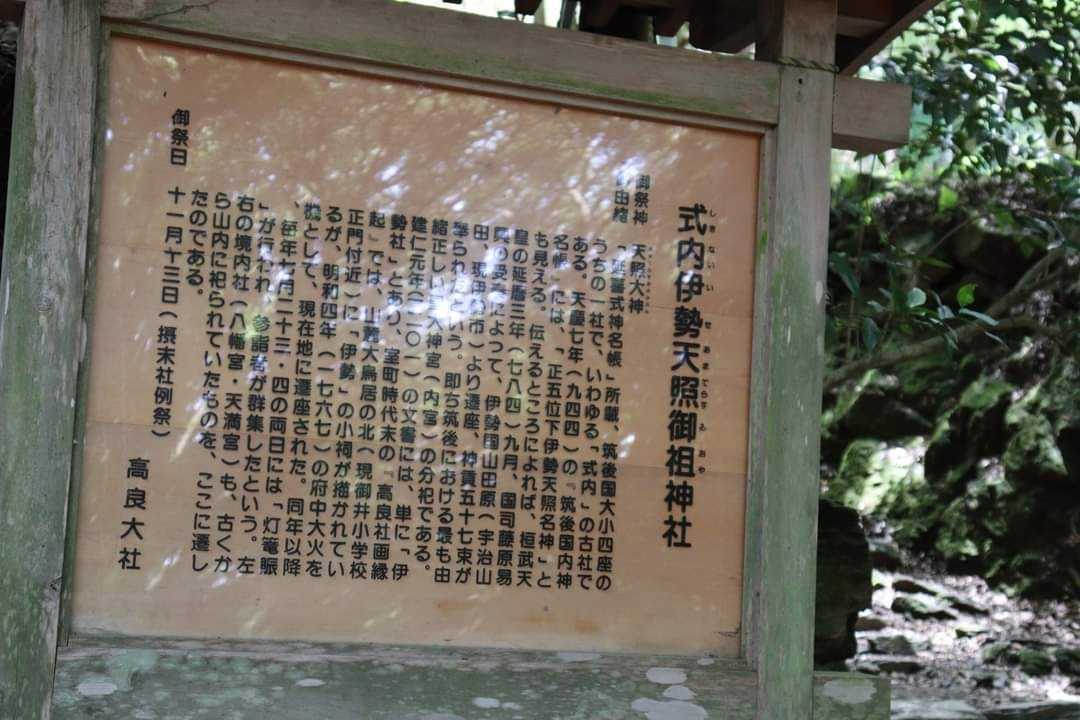 式内伊勢天照御祖神社
しきないいせあまてらすみおや
御祭神 天照大神
由緒 「延喜式神名帳」所載、筑後国大小四座の
うちの一社で、いわゆる「式内」の古社で
ある。天慶七年(九四四)の『筑後国内神
名帳』には、「正五位下伊勢天照名神」と
も見える。伝えるところによれば、桓武天
皇の延暦三年(七八四)九月、国司藤原易
の受によって、伊勢国山田原(宇治山
田、現伊勢市)より遷座、神貢五十七束が
挙られたという。即ち筑後における最も由
緒正しい皇大神宮(内宮)の分祀である。
建仁元年(一二〇一)の文書には、単に「伊
勢社」とあり、室町時代末の『高良社画縁
起』では、山麓大鳥居の北(現御井小学校
正門付近)に「伊勢」の小祠が描かれてい
るが、明和四年(一七六七)の府中大火を
機として、現在地に遷座された。同年以降
、毎年七月二十三・四の両日には「灯篭賑
」が行われ、参詣者が群集したという。左
右の境内社(八幡宮・天満宮)も、古くか
ら山内に祀られていたものを、ここに遷し
たのである。
御祭日 十一月十三日(摂末社例祭)
高良大社